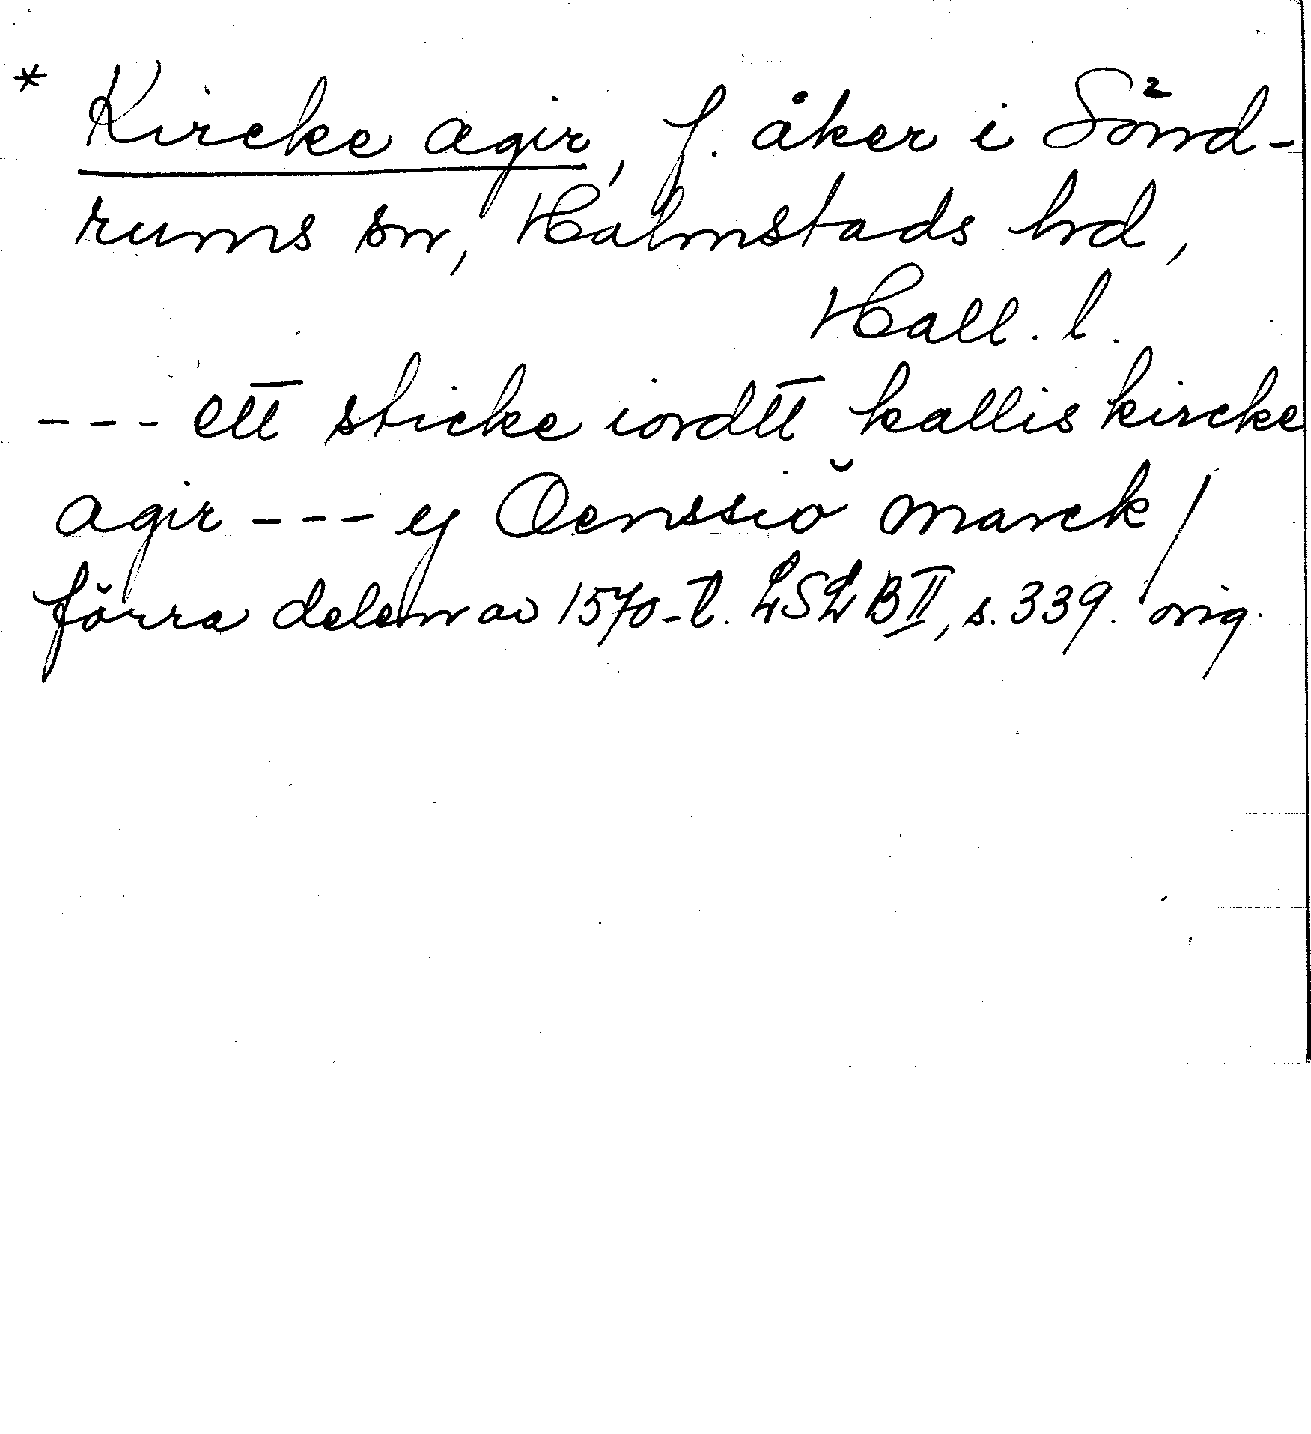 * Kircke agir, f. åker i Sönd-
rums sn, Halmstads hd,
Hall. l.
--- ett sticke iordtt kallis kircke
agir --- y Oenssiö marck /
förra delen av 1570-t. LSL B II, s. 339. orig.